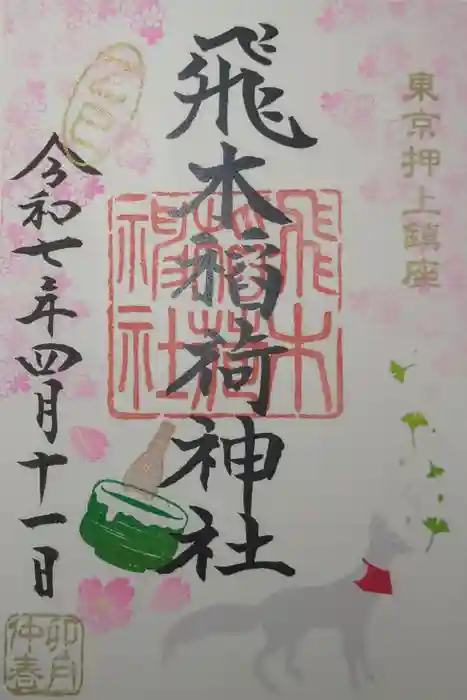 東京押上鎮座
飛木稲荷神社
飛木稲荷神社
令和七年四月十一日
卯月
仲春